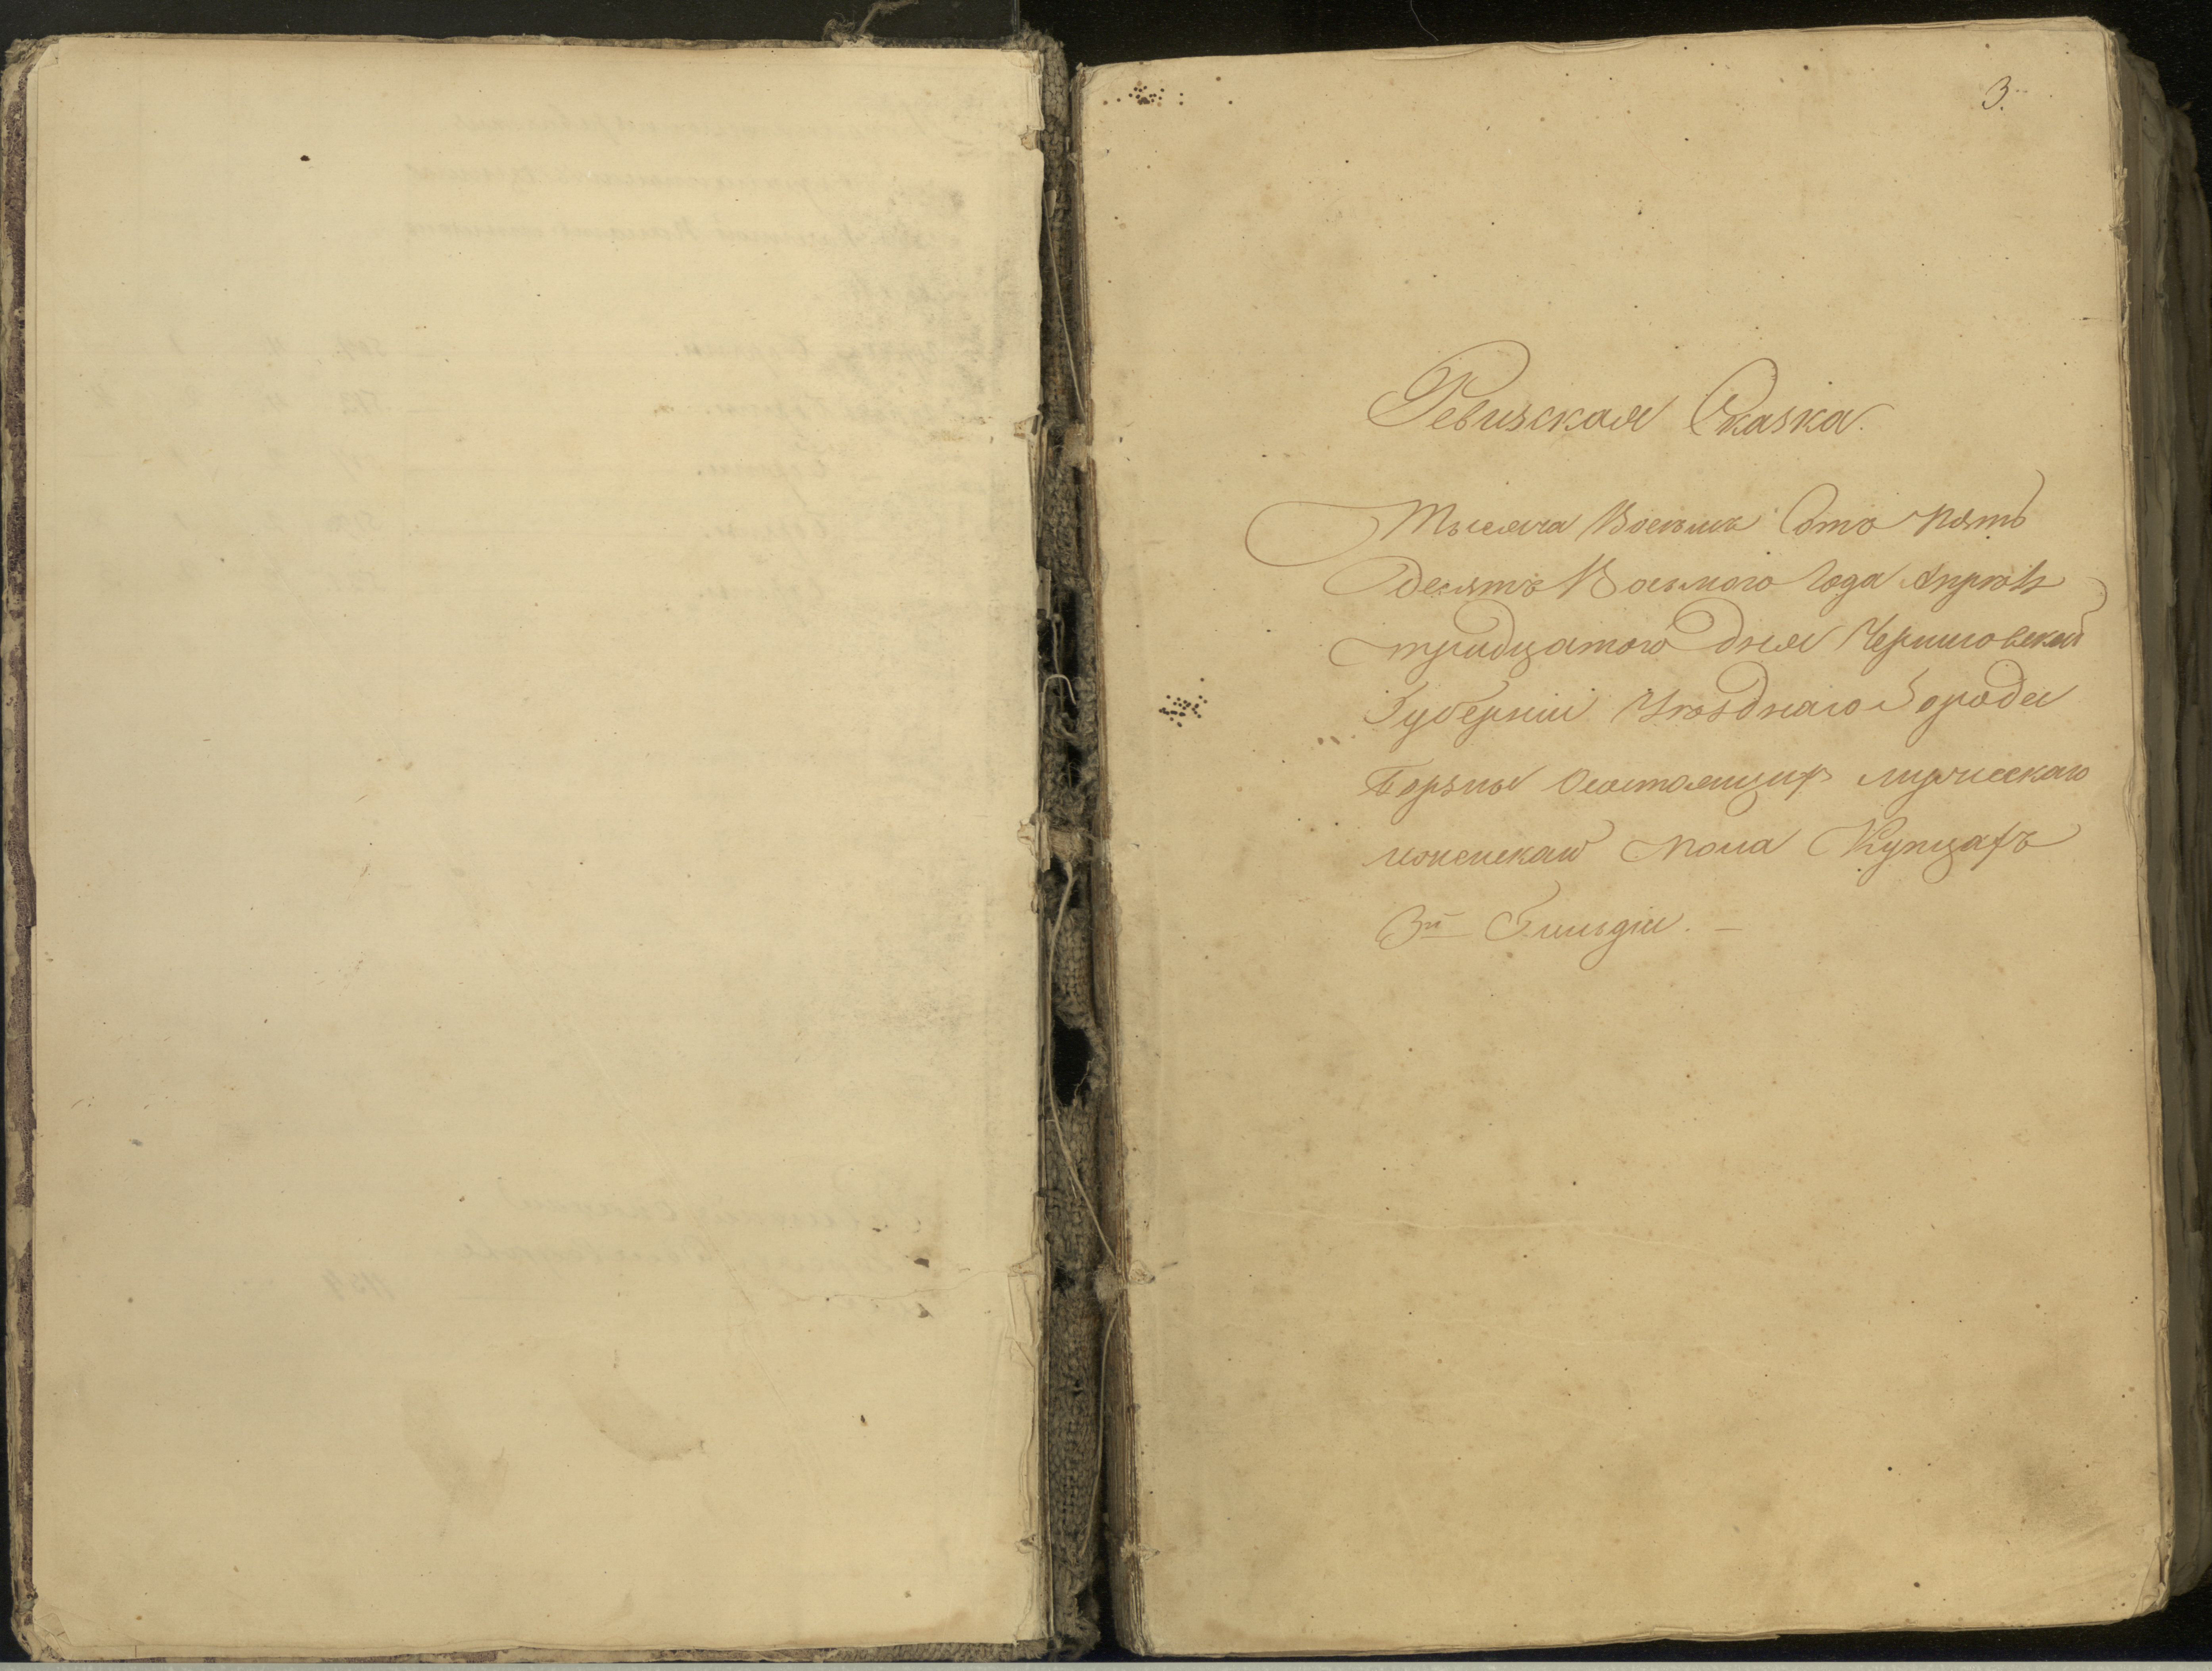 3.
Ревизская Сказка.
Тысяча Восемь Сотъ пять
десятъ Восьмого года Апрѣля
тридцатого дня Черниговской
Губерніи Уѣзднаго Города
Борзны Осостоящихъ мужескаго
иженскаго пола Купцахъ
3й Гильдіи. —